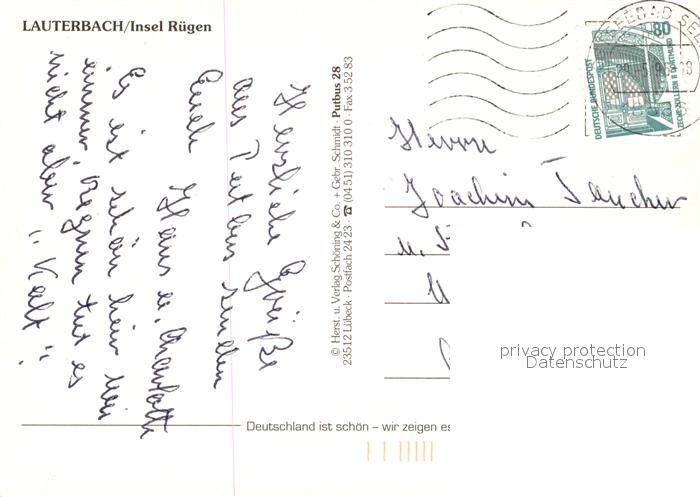 LAUTERBACH/Insel Rügen
Herzliche Grüße
aus Putbus senden
Euch Hans u. Charlotte
Es ist schön hier wie
immer, Regnen tut es
nicht aber "Kalt".
© Herst. u. Verlag Schöning & Co. + Gebr. Schmidt · Putbus 28
23512 Lübeck · Postfach 24 23 · ☎ (04 51) 310 310 0 · Fax 3 52 83
SEEBAD SEL
80
DEUTSCHE BUNDESPOST
ZECHE ZOLLERN II DORTMUND
Herrn
Joachim
u.
privacy protection
Datenschutz
Deutschland ist schön – wir zeigen es